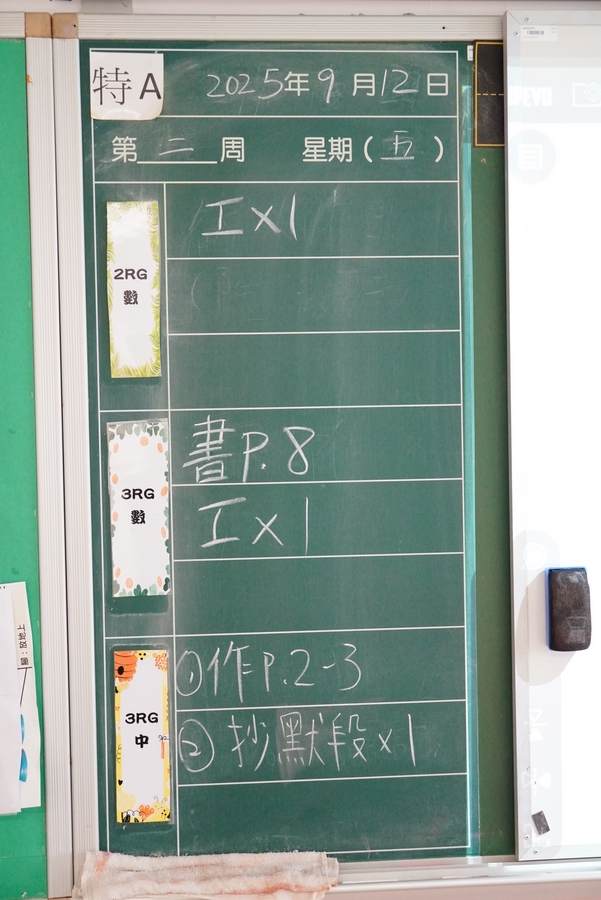 特A
2025年9月12日
第二周 星期(五)
2RG
數
工×1
3RG
數
書P.8
工×1
3RG
中
①作P.2-3
②抄默段×1
腳:放地上